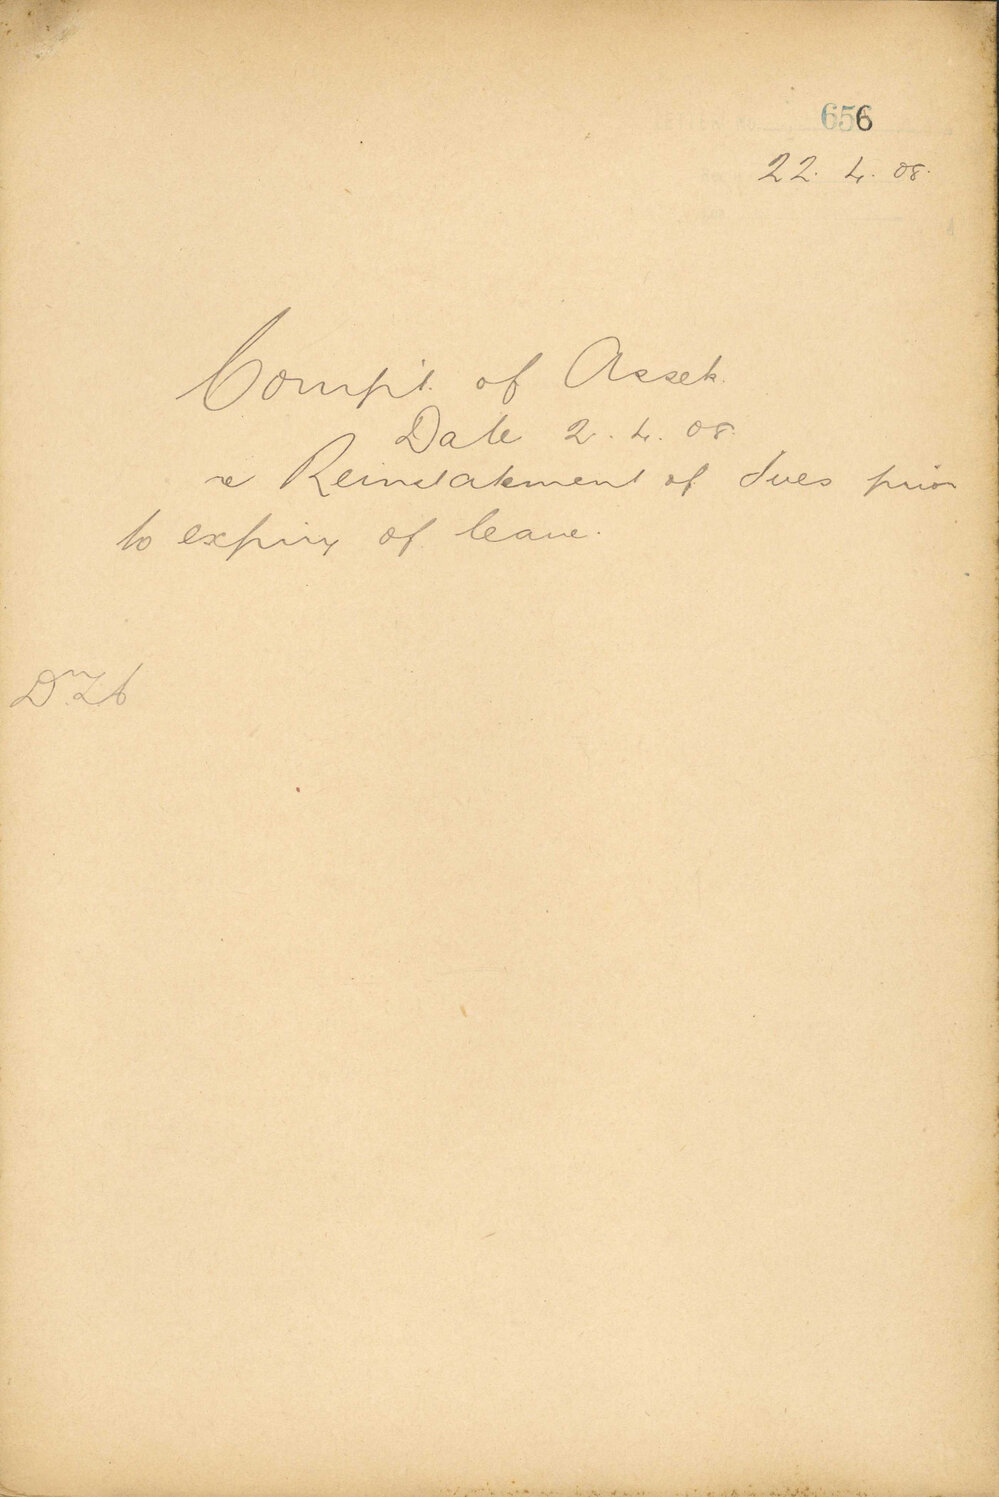 656
22. 4. 08.
Compt. of Assets.
Date 2. 4. 08.
re Reinstatement of dues prior
to expiry of leave.